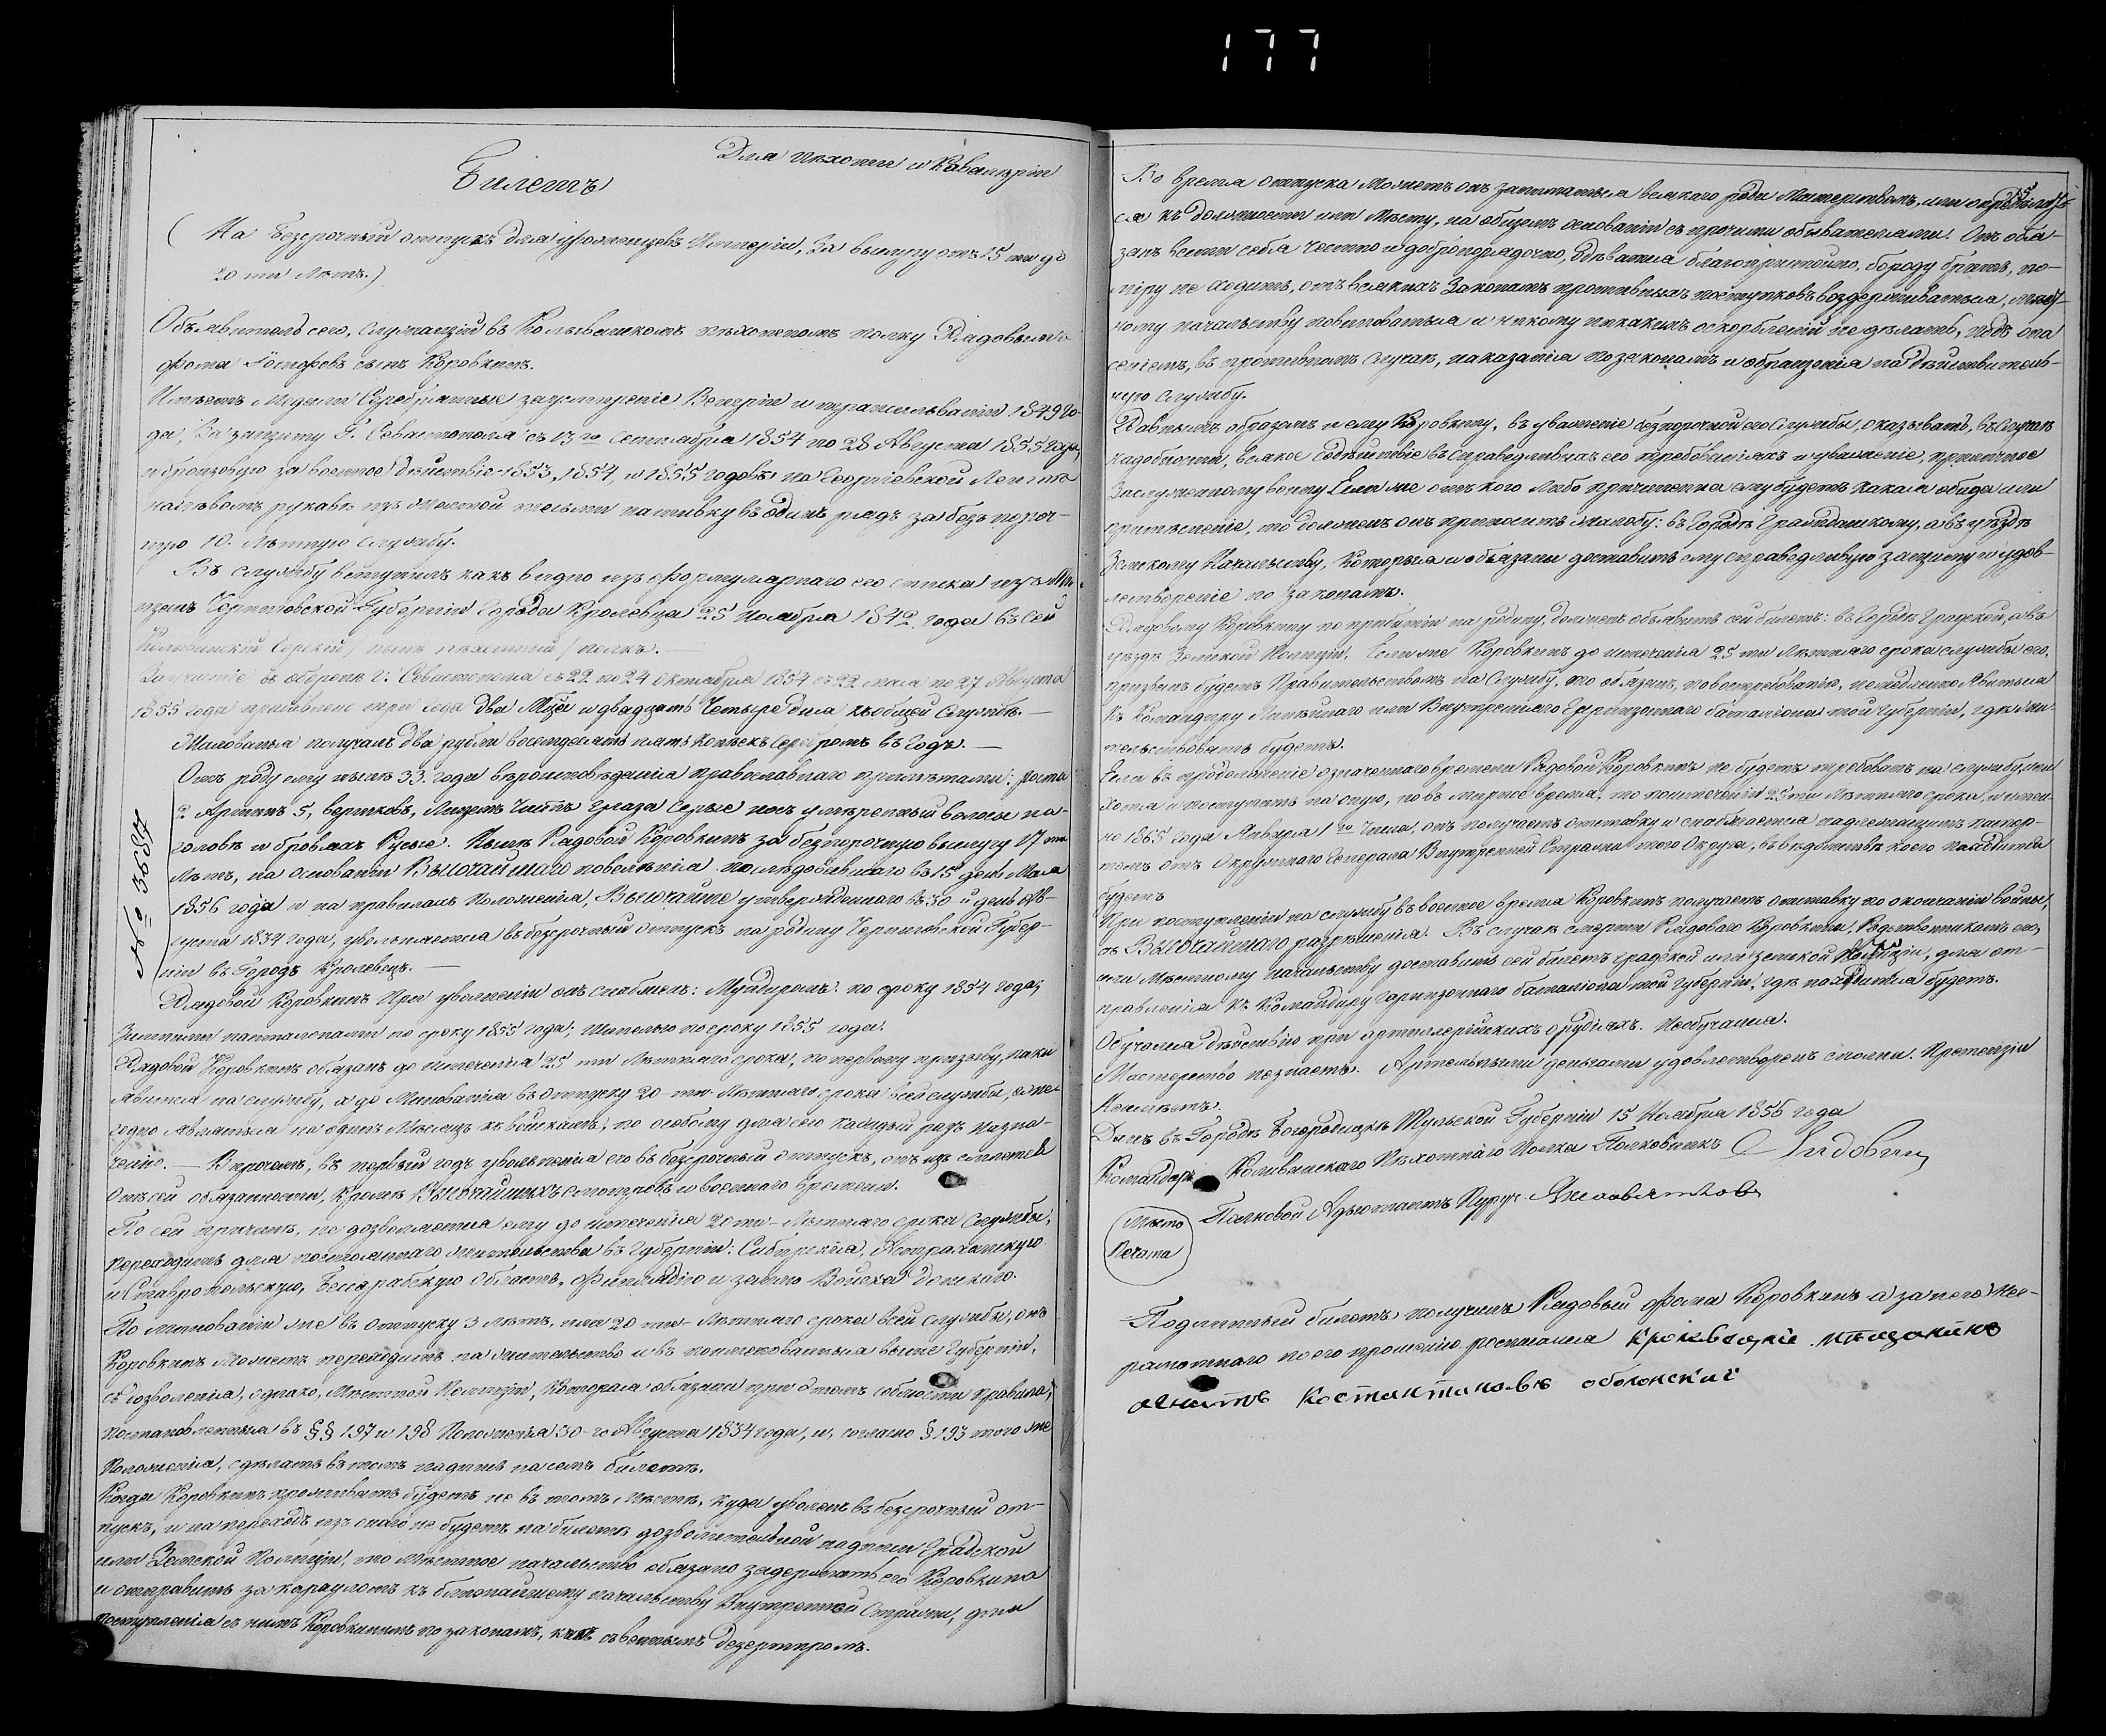 177
Для пѣхоты и Кавалеріи
Билетъ
(На Безсрочный отпускъ для уроженцевъ Имперіи, За выслугу отъ 15 ти до
20 ти лѣтъ.)
Объявитель сего, служащій въ Колыванскомъ пѣхотномъ полку Рядовымъ
Фома Іосифовъ сынъ Коровкинъ.
Имѣетъ Медали Серебряные заусмиреніе Венгріи и трансильваніи 1849 го-
да, За защиту Г. Севастополя съ 13 го Сентября 1854 по 28 Августа 1855 года,
и бронзовую за военное дѣйствіе 1853, 1854, и 1855 годовъ на Георгіевской Лентѣ
налѣвомъ рукавѣ изъ желтой тесьмы нашивку въ одинъ рядъ за безпороч-
ную 10. Лѣтнюю Службу.
Въ службу вступилъ какъ видно изъ формулярнаго его списка изъ Мѣ-
щанъ Черниговской Губерніи Города Кролевца 25 Ноября 1842 года въ Сей
Колыванскій Егерскій / нынѣ пѣхотный / полкъ.—
Заучастіе въ оборонѣ г. Севастополя съ 22 по 24 Октября 1854 съ 22 мая по 27 Августа
1855 года прибавлено три года два Мѣсяца и двадцать Четыре дня къобщей Службѣ.—
Жалованья получалъ два рубли восемдесятъ пять Копѣекъ Серебромъ въ Годъ.—
Отъ роду ему нынѣ 33. года вѣроисповѣданія православнаго примѣтами: роста
2 Аршинъ 5, вершковъ, Лицемъ чистъ глаза Серые носъ умѣренный волосы на-
головѣ и бровяхъ Русые. Нынѣ Рядовой Коровкинъ за безпорочную выслугу 17 ти
Лѣтъ, на основаніи Высочайшаго повелѣнія послѣдовавшаго въ 15 день Мая
1856 года и на правилахъ Положенія, Высочайше утвержденнаго въ 30 й день Ав-
густа 1834 года, увольняется въ безсрочный отпускъ на родину Черниговской Губер-
ніи въ Городъ Кролевецъ.—
№ 3687
Рядовой Коровкинъ При увольненіи онъ снабженъ: Мундиромъ по сроку 1854 года,
Зимними панталонами по сроку 1855 года; Шинелью по сроку 1855 года.
Рядовой Коровкинъ обязанъ до истеченія 25 ти Лѣтняго срока, по первому призыву, паки
явится на службу, а до Минованія въ Отпуску 20-ти Лѣтняго срока всей службы, еже-
годно являться на одинъ Мѣсяцъ къ войскамъ, по особому для сего каждый разъ назна-
ченію.— Впрочемъ, въ первый годъ увольненія его въ безсрочный отпускъ, онъ изъемлется
Отъ сей обязанности, кромѣ Высочайшихъ смотровъ и военнаго времени.
По сей причинѣ, не дозволяется ему до истеченія 20ти-Лѣтняго срока Службы,
переходить для постояннаго жительства въ Губерніи: Сибирскія, Астраханскую
и Ставропольскую, Бессарабскую Область, Финляндію и землю Войска донскаго.
По минованіи же въ отпуску 3 лѣтъ, или 20 ти-Лѣтняго срока всей службы, онъ
Коровкинъ Можетъ переходить на жительство и въ поименованныя выше Губерніи,
съ дозволенія, однако, Мѣстной Полиціи, Которая обязана при этомъ соблюсти правила,
постановленныя въ §§ 197 и 198 Положенія 30-го Августа 1834 года, и, согласно § 193 того же
Положенія, сдѣлать въ томъ надпись насемъ билетѣ.
Когда Коровкинъ проживать будетъ не въ томъ Мѣстѣ, куда уволенъ въ безсрочный от-
пускъ, и на переходъ изъ онаго не будетъ на билетѣ дозволительной надписи Градской
или Земской Полиціи, то Мѣстное начальство обязано задержать его Коровкина
и отправить за карауломъ къ ближайшему начальству Внутренней Стражи, для
поступленія съ нимъ Коровкинымъ по законамъ, какъ съ военнымъ дезертиромъ.
Во время отпуска Можетъ онъ заниматься всякаго рода Мастерствомъ, или опредѣлять-
ся къ должности или Мѣсту, на общемъ основаніи съ прочими обывателями. Онъ обя-
занъ вести себя Честно и добропорядочно, одѣваться благопристойно, бороду брить, по-
міру не ходить, отъ всякихъ Законамъ противныхъ поступковъ воздерживаться, Мѣст-
ному начальству повиноваться и никому никакихъ оскорбленій не дѣлать, подъ опа
сеніемъ, въ противномъ Случаѣ, наказанія по законамъ и обращенія на дѣйствитель-
ную Службу.
Равнымъ образомъ и ему Коровкину, въ уваженіе безпорочной его Службы, оказывать, въ Случаѣ
надобности, всякое содѣйствіе въ Справедливыхъ его требованіяхъ и уваженіе, приличное
Заслуженному воину Если же отъ кого либо причинена ему будетъ какая обида или
притѣсненіе, то долженъ онъ приносить жалобу: въ Городѣ Гражданскому, а въ уѣздѣ
Земскому Начальству, Которыя и обязаны доставить ему справедливую защиту и удов-
летвореніе по законамъ.
Рядовому Коровкину по прибытіи на родину, долженъ объявить сей билетъ: въ Городѣ Градской, а въ
уѣздѣ Земской Полиціи. Если же Коровкинъ до истеченія 25 ти Лѣтняго срока службы его,
призванъ будетъ Правительствомъ на Службу, то обязанъ, по востребованію, немедленно Явиться
Къ Командиру Линѣйнаго или Внутренняго Гарнизоннаго баталіона той Губерніи, гдѣ жи-
тельствовать будетъ.
Если въ продолженіе означеннаго времени Рядовой Коровкинъ не будетъ требованъ на службу, или
Хотя и поступитъ на оную, но въ мирное время, то поистеченіи 25 ти Лѣтняго срока, а имен-
но 1865 года Января 1 го Числа, онъ получаетъ отставку и снабжается надлежащимъ паспор-
томъ отъ Окружнаго Генерала Внутренней Стражи того Округа, въ вѣдомствѣ коего находиться
будетъ
При поступленіи на службу въ военное время Коровкинъ получаетъ отставку по окончаніи войны,
съ Высочайшаго разрѣшенія. Въ случаѣ смерти Рядоваго Коровкина, Родственникамъ его,
или Мѣстному начальству доставить сей билетъ градской или земской Полиціи, для от-
правленія Къ Командиру гарнизоннаго баталіона той Губерніи, гдѣ находиться будетъ.
Обучался дѣйствію при артиллерійскихъ орудіяхъ. Необучался.
Мастерство незнаетъ. Артельными деньгами удовлетворенъ сполна. Претензіи
Неимѣетъ.
Данъ въ Городѣ Богородицкѣ Тульской Губерніи 15 Ноября 1856 года
Командиръ Колыванскаго Пѣхотнаго Полка Полковникъ
Полковой Адъютантъ
Мѣсто
Печати
Подлинный билетъ получилъ Рядовый Фома Коровкинъ а занего Нег-
рамотнаго поего прошенію росписался кролевецкіе мещанинъ
Костянтиновъ оболонскиі